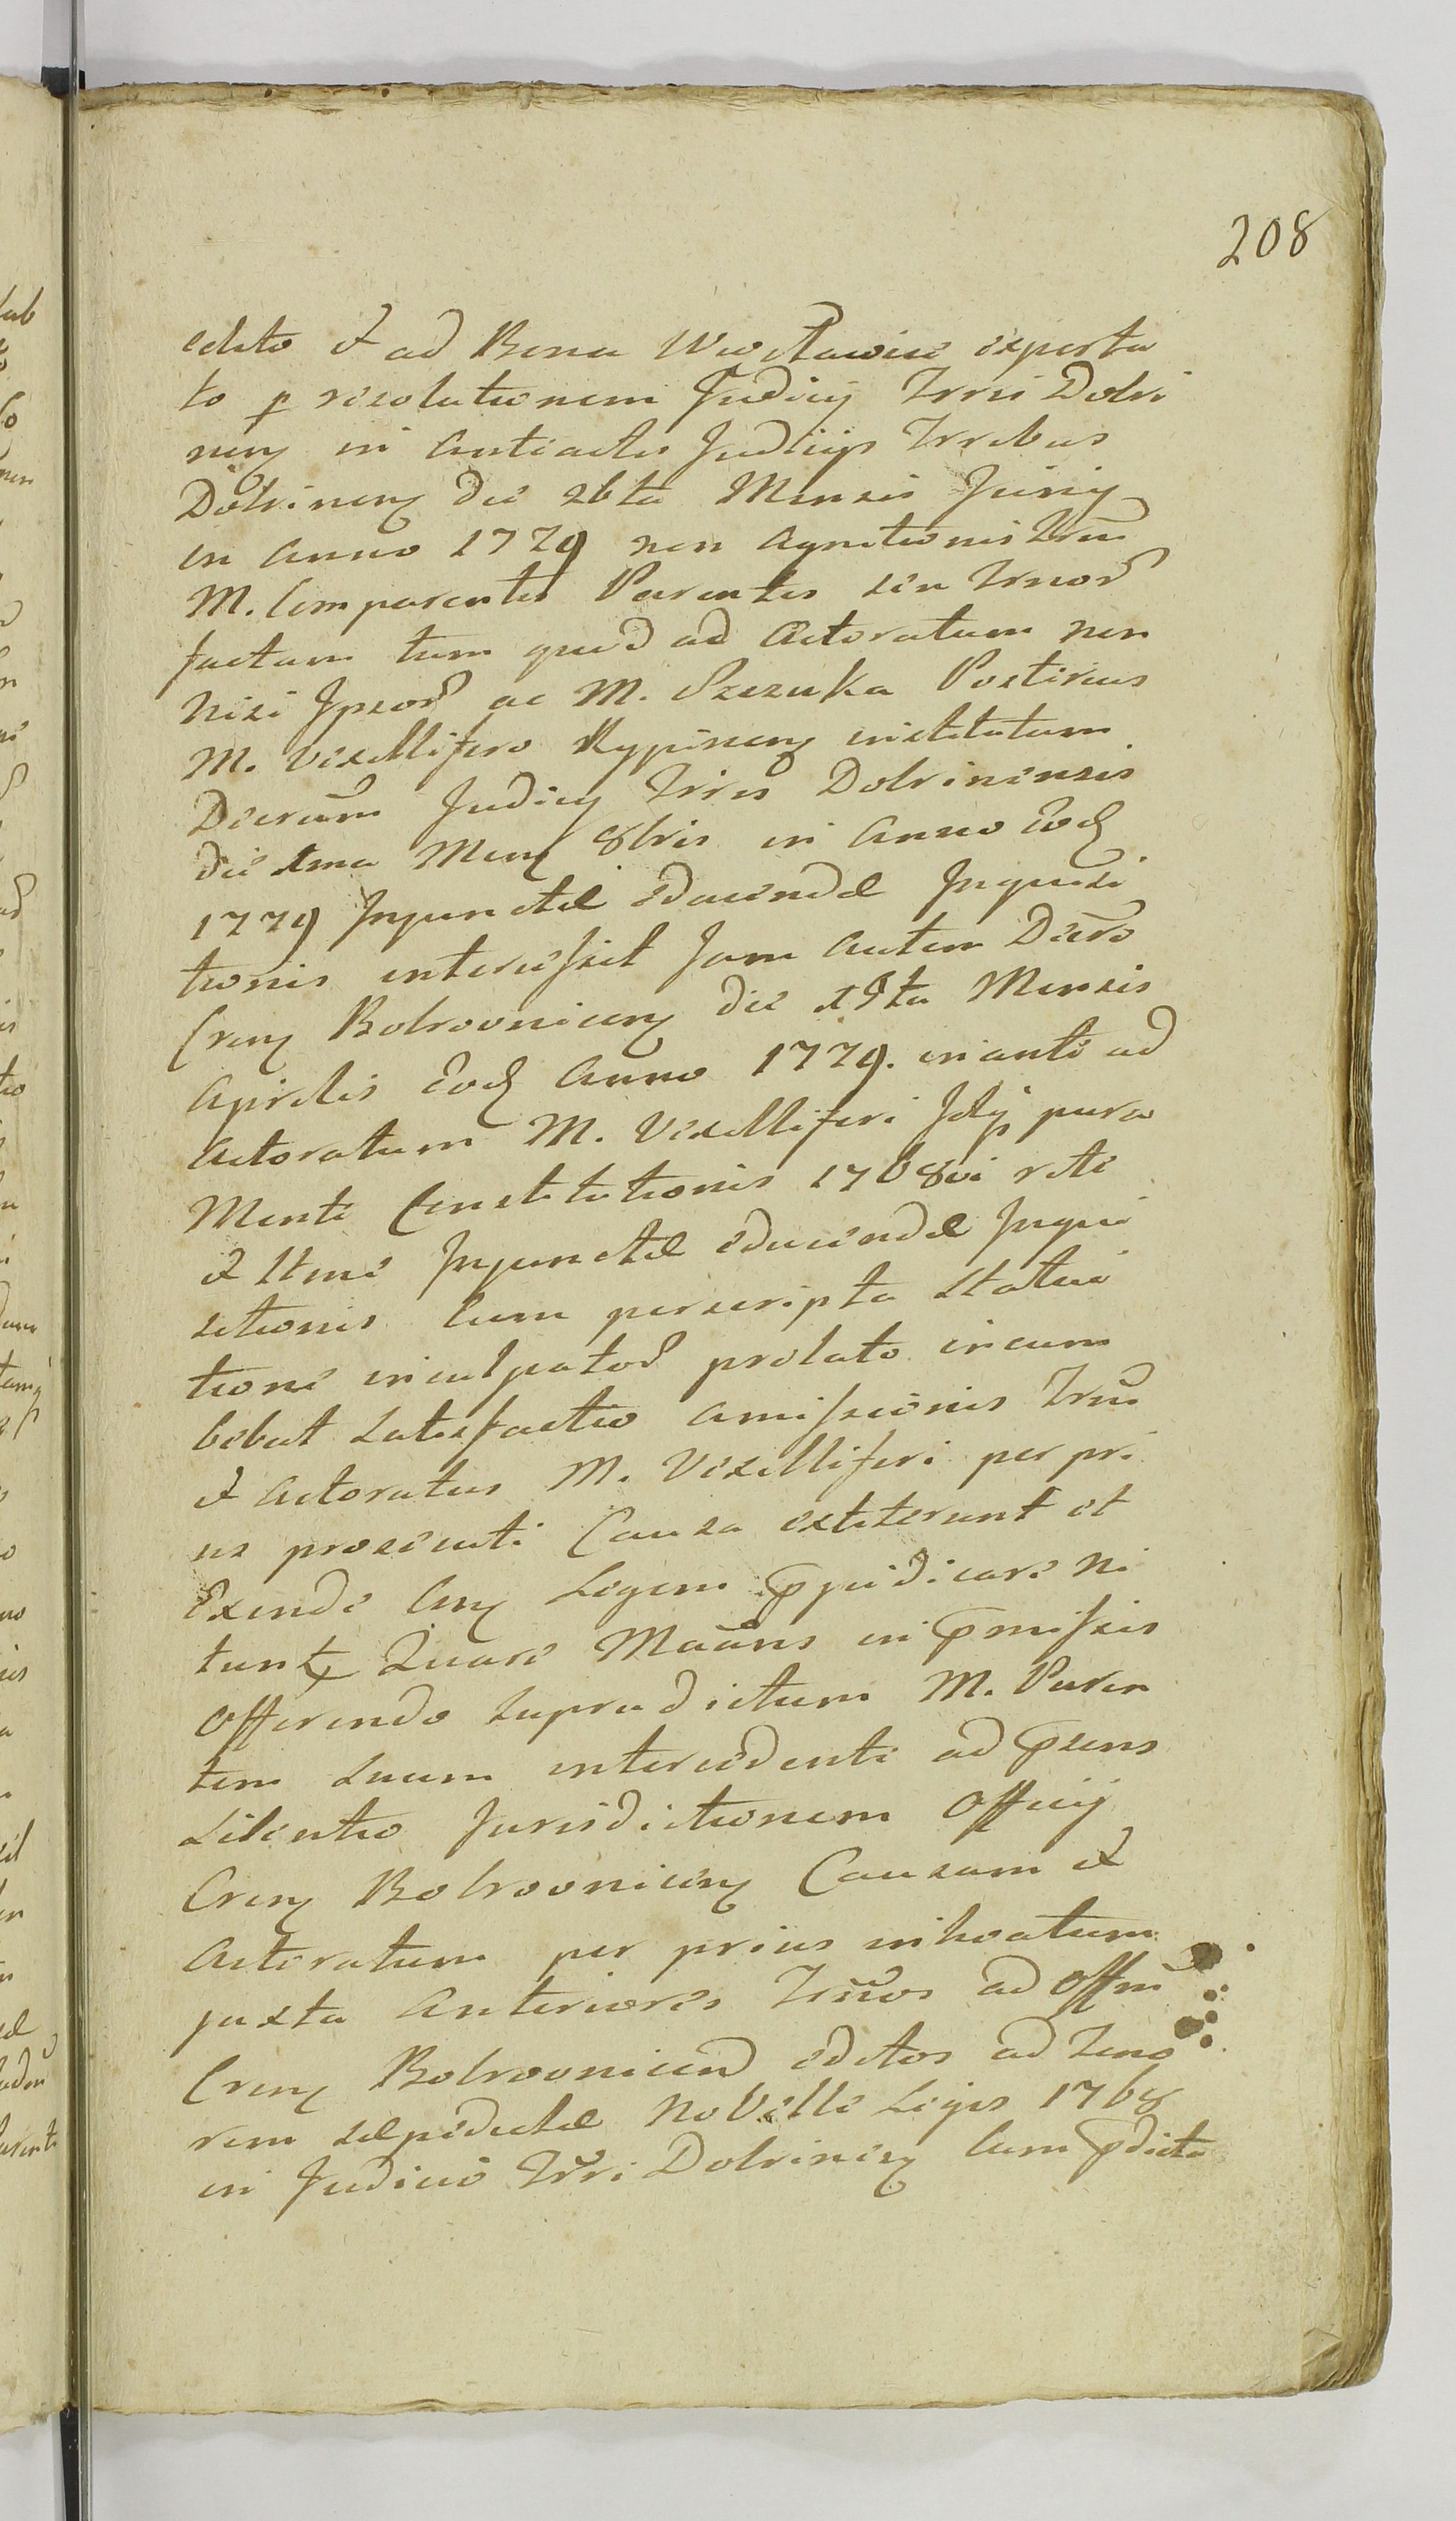 208
edito et ad Bona Wwoctawice exporta
to p resolutionem Judicij Trris Dobri
neñ in anteactis Judicijs Trrebus
Dobrineñ die 26ta Mensis Junij
in Anno 1779 non Agnitionis Trm
M. Comparentis Parentis seu Trnor
factam tum quod ad Actoratum non
nisi Ipsor ac M. Szczuka Postirius
M. Vexillifero Rypineñ institutum
Decrum Judicij Trris Dobrinensis
die 1ma Meñ 8bris in Anno Eod
1779 Injunctæ educendæ Inquisi
tionis intercessit Jam autem Decro
Creñ Bobrovniceñ die 15ta Mensis
Aprilis Eod Anno 1779. inante ad
Actoratum M. Vexilliferi Jdq pura
Mente Constitutionis 1768vi rite
et ltme Injunctæ educendæ Inqui
sitionis cum perscripta Statui
tione inculpator prolato incum
bebat Satisfactio Amissionis Trm
et Actoratus M. Vexilliferi per pri
us prosecuti Causa extiterunt et
Exinde Cuṅ Legem pjudicare ni
tunt Quare Maans in pmissis
Offerendo supradictum M. Paren
tem Suum intercedenti ad psens
Silentio Jurisdictionem Officij
Creñ Bobrovniceñ Causam et
Actoratum per prius inhoatum
juxta Anteriores Trnos ad Offm
Creñ Bobrovnicen editos ad Teno
rem sæpedictæ Novellæ Legis 1768
in Judicio Trri Dobrineñ cum pdicta